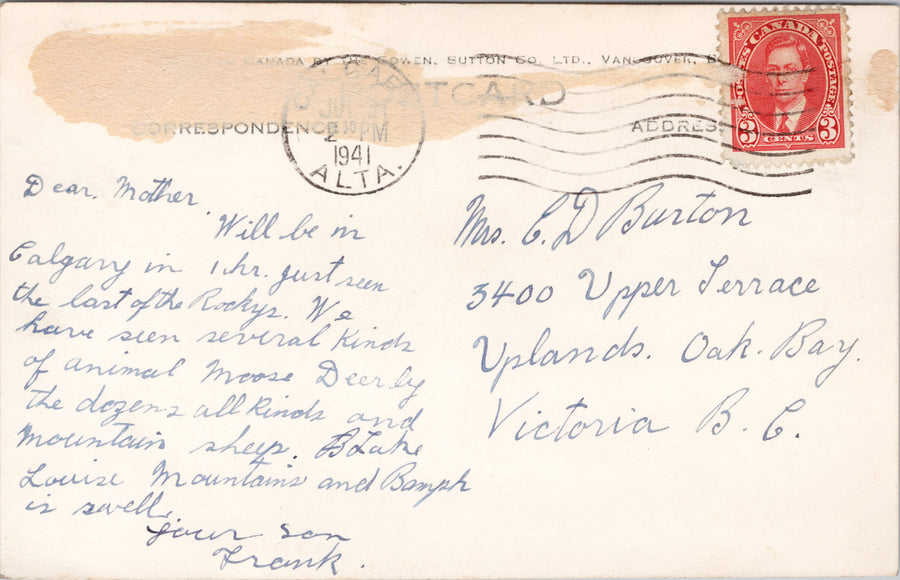 CANADA BY THE GOWEN, SUTTON CO. LTD., VANCOUVER, B
POSTCARD
CORRESPONDENCE
ADDRESS
CALGARY
2 30 PM
1941
ALTA.
POSTES CANADA POSTAGE
3 CENTS 3
Dear, Mother
Will be in
Calgary in 1 hr. just seen
the last of the Rockys. We
have seen several kinds
of animal Moose Deer by
the dozens all kinds and
Mountain sheep. B Lake
Louise Mountains and Bamph
is swell.
your son
Frank.
Mrs. C. D Burton
3400 Upper Terrace
Uplands. Oak. Bay.
Victoria B. C.